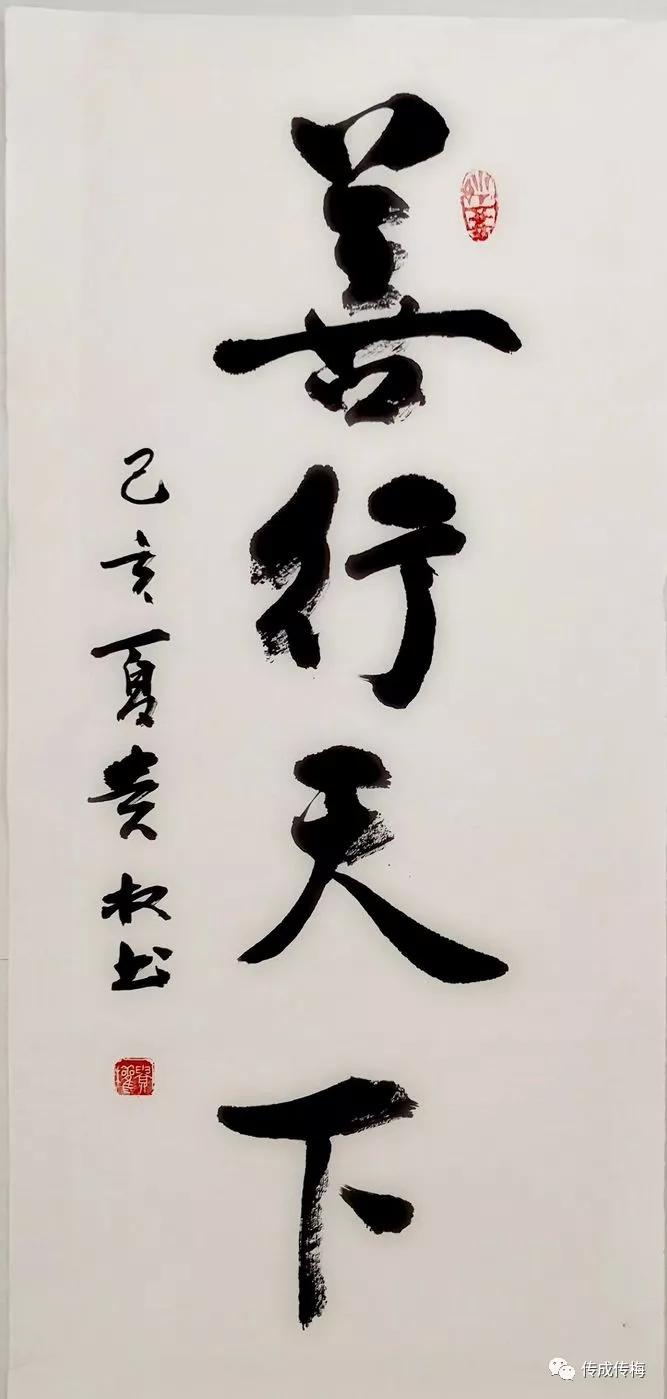 善行天下
己亥夏贵权书
传成传梅